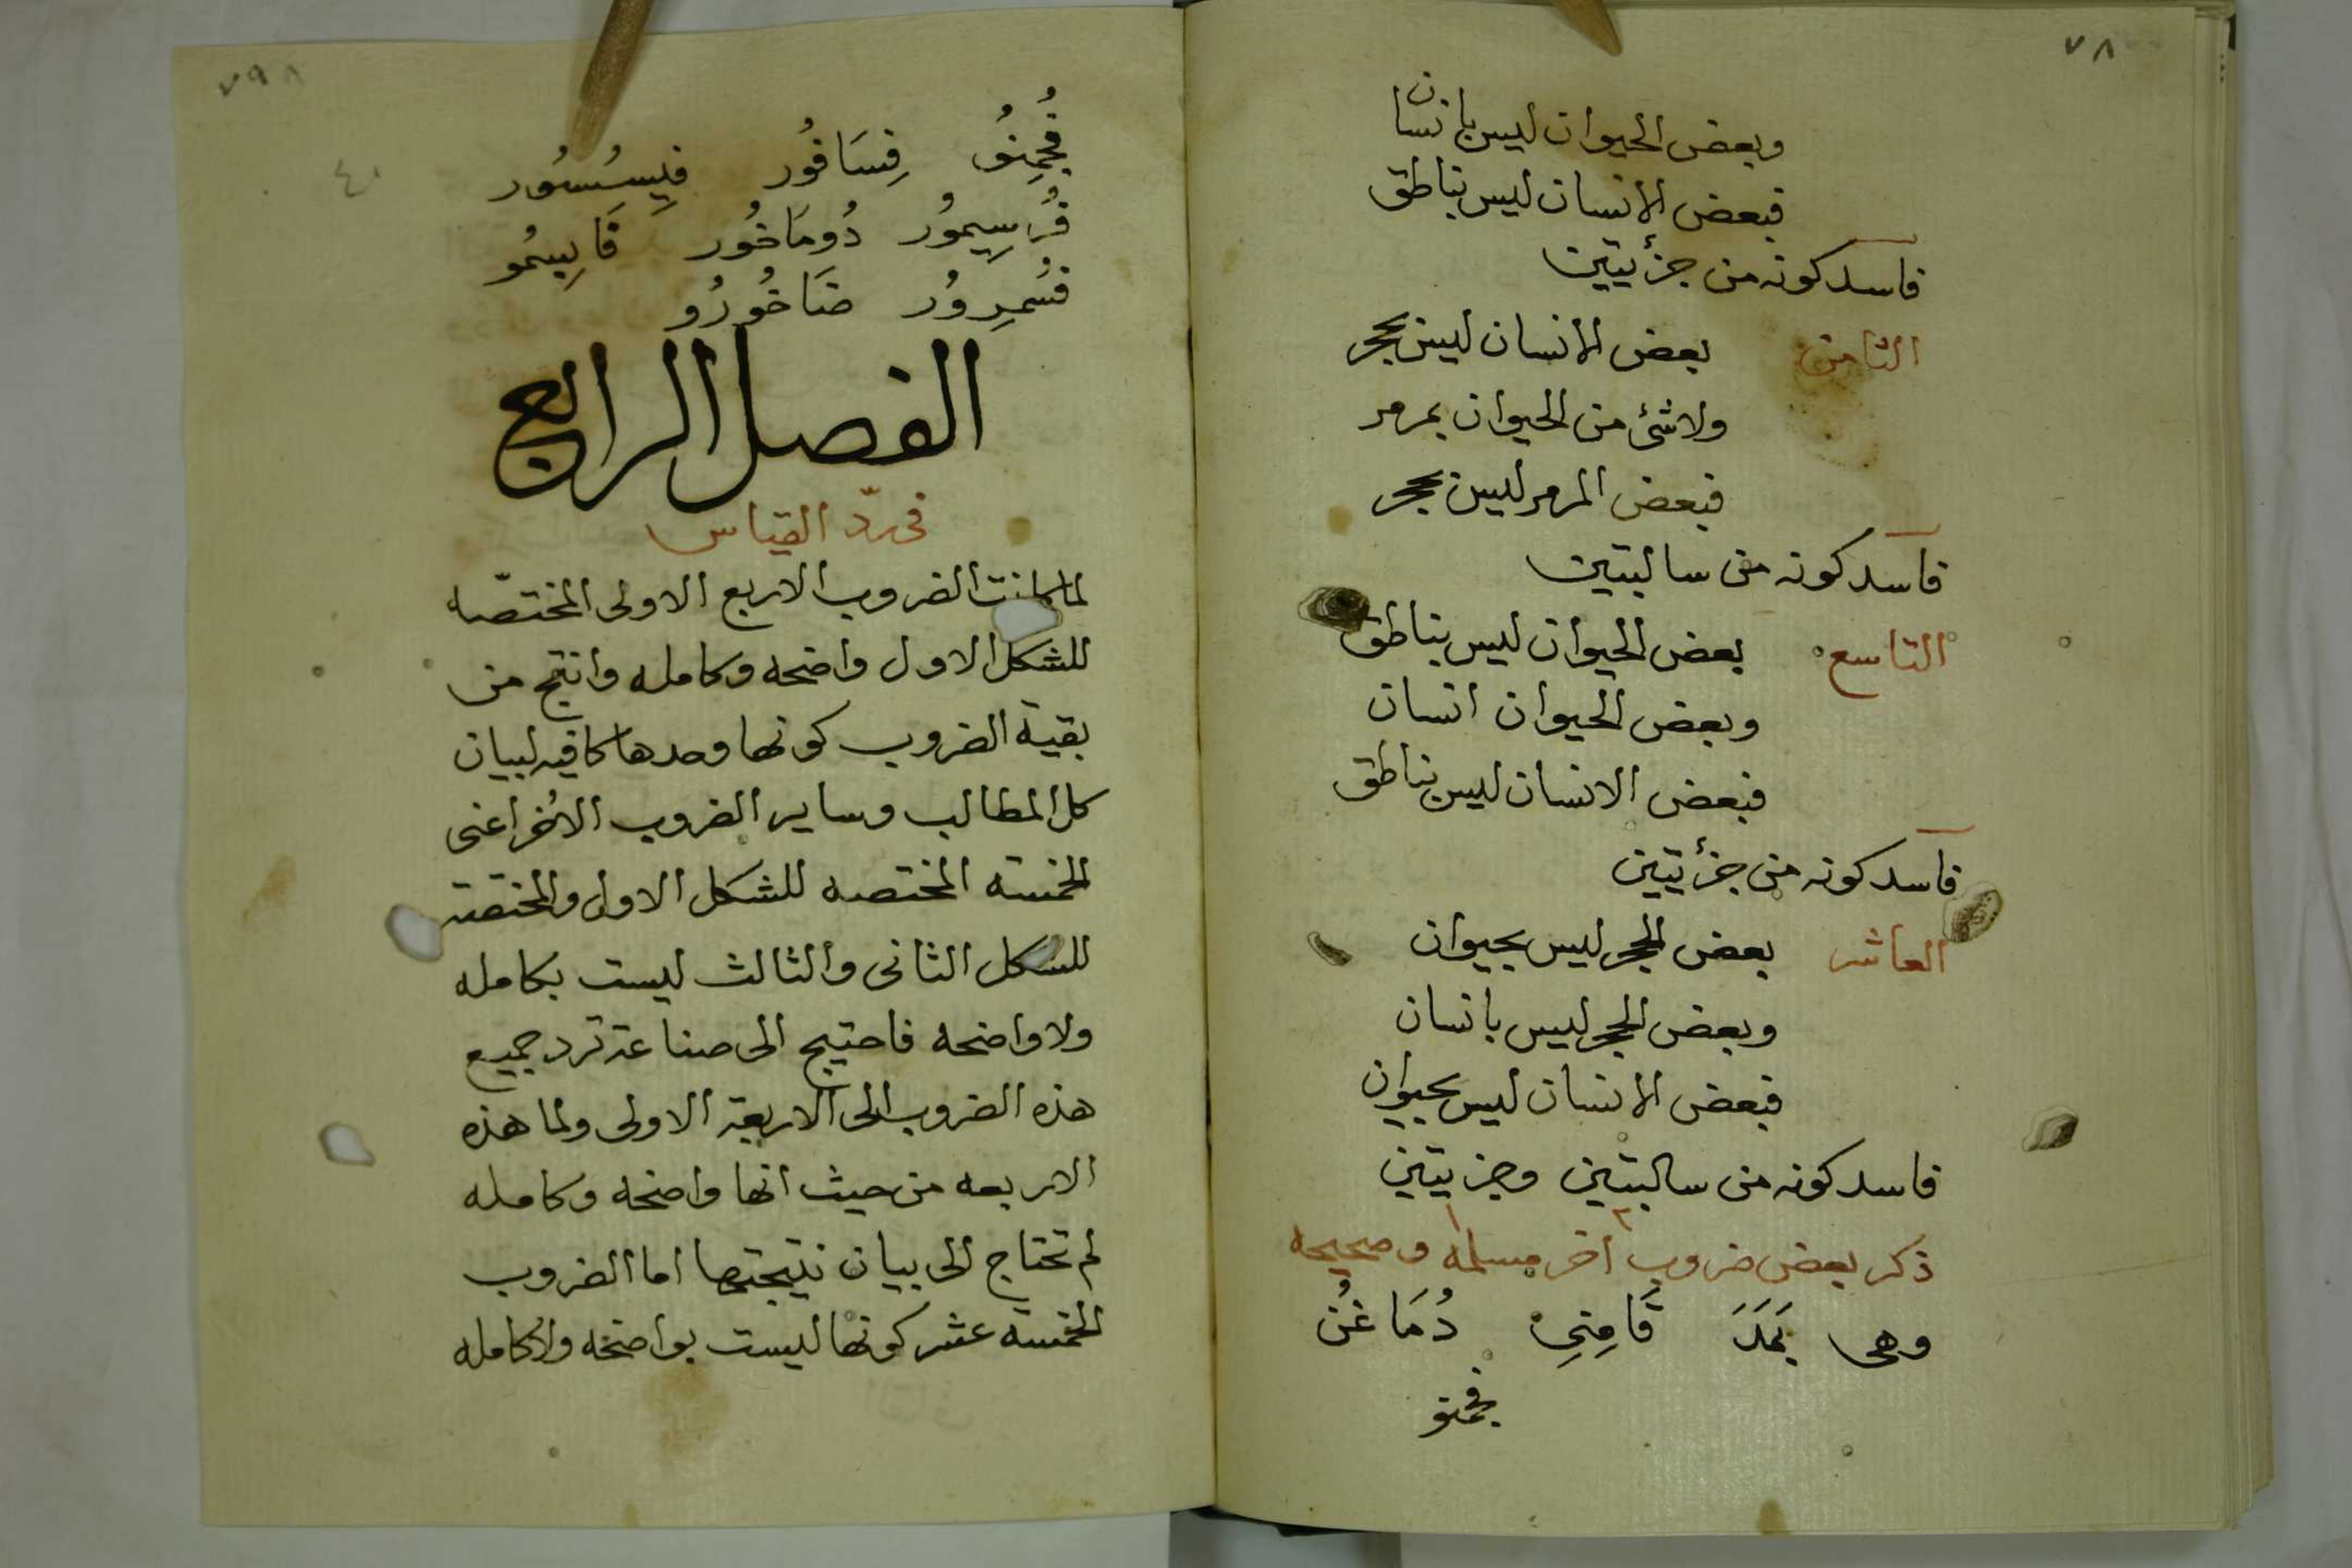 ٧٨
وبعض الحيوان ليس بانسان
فبعض الانسان ليس بناطق
فاسد كونه من جزئيتين
الثامن بعض الانسان ليس بحجر
ولا شئ من الحيوان بمرمر
فبعض المرمر ليس بحجر
فاسد كونه من سالبتين
التاسع بعض الحيوان ليس بناطق
وبعض الحيوان انسان
فبعض الانسان ليس بناطق
فاسد كونه من جزئيتين
العاشر بعض الحجر ليس بحيوان
وبعض الحجر ليس بانسان
فبعض الانسان ليس بحيوان
فاسد كونه من سالبتين وجزييتين
ذكر بعض ضروب اخر مسلمه وصحيحه
وهى دُمَاغُن
٧٩
٤٠
فِسَافُور فِيسِسُور
فُرسِيمُور دُومَاخُور قَابِيسمُو
فسُمرِورُ ضَاخُورُو
الفصل الرابع
فى ردّ القياس
لما كانت الضروب الاربع الاولى المختصّه
للشكل الاول واضحه وكامله وانتج من
بقية الضروب كونها وحدها كافيه لبيان
كل المطالب وساير الضروب الاُخر اعنى
الخمسة المختصه للشكل الاول والمختصة
للشكل الثانى والثالث ليست بكامله
ولا واضحه فاحتيج الى صناعة ترد جميع
هذه الضروب الى الاربعة الاولى ولما هذه
الاربعه من حيث انها واضحه وكامله
لم تحتاج الى بيان نتيجتها اما الضروب
الخمسة عشر كونها ليست بواضحه ولا كامله